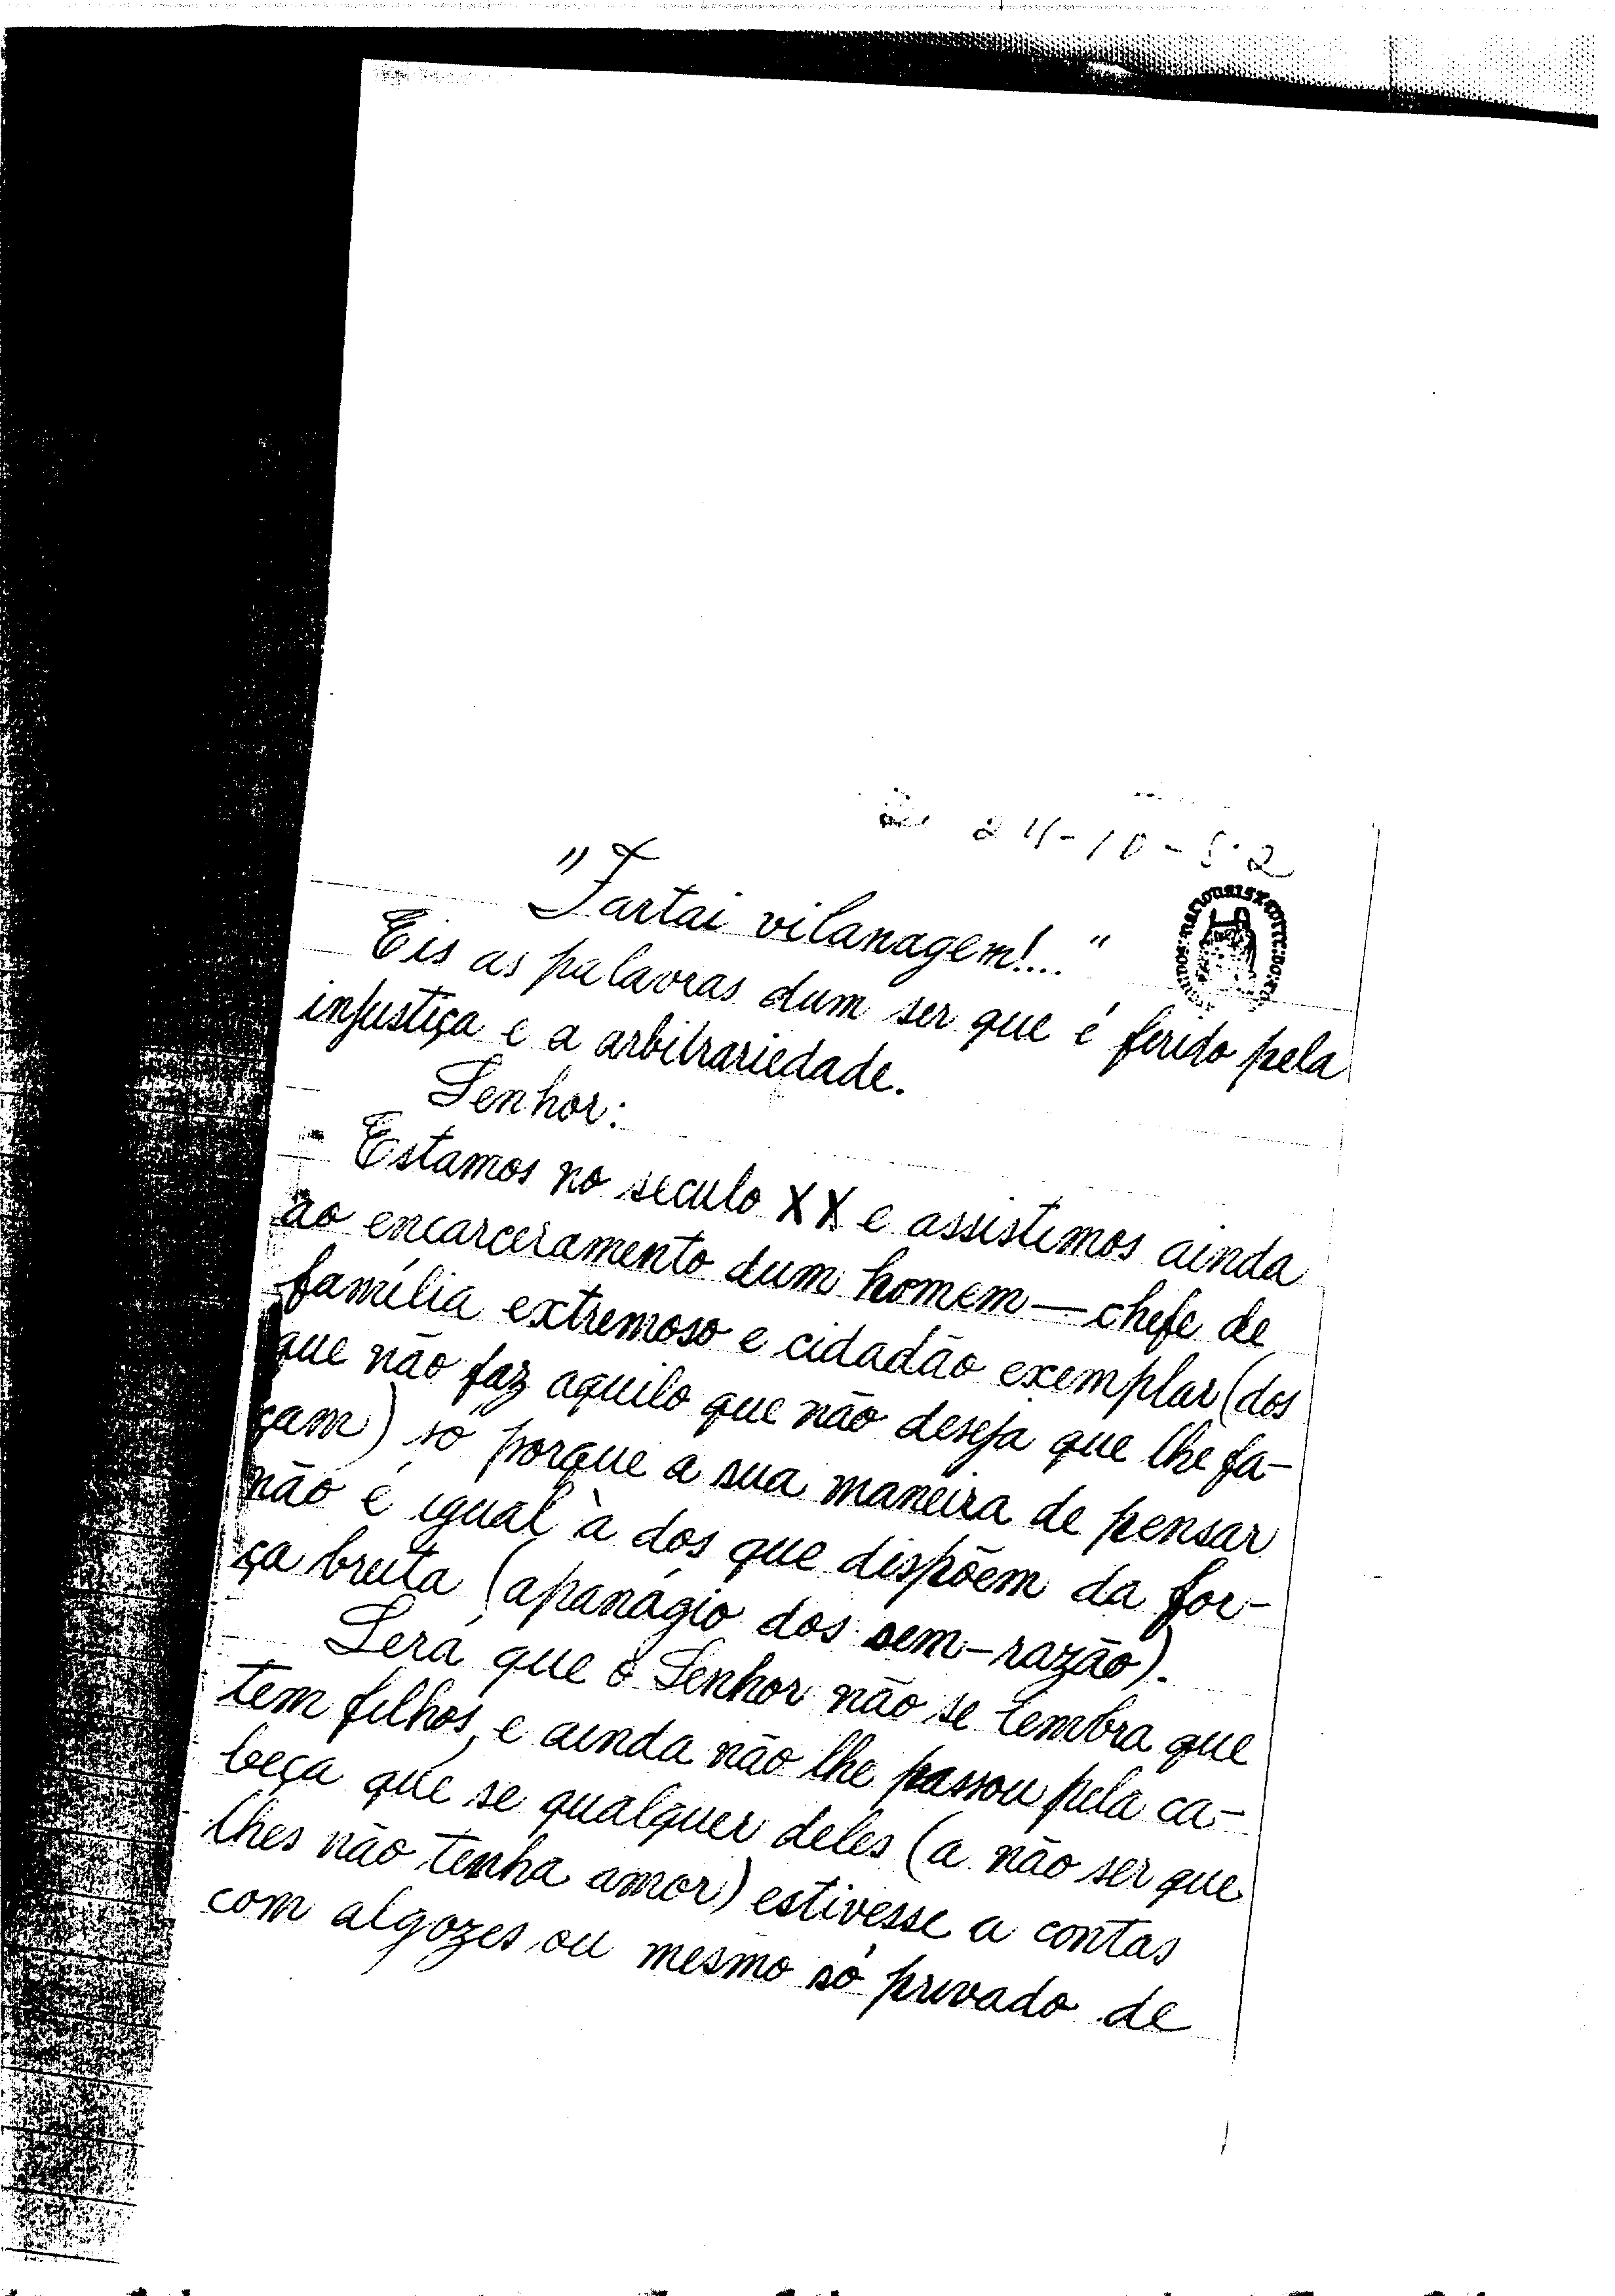 24-10-52
"Fartai vilanagem!... "
Eis as palavras dum ser que é ferido pela
injustiça e a arbitrariedade.
Senhor:
Estamos no seculo XX e assistimos ainda
ao encarceramento dum homem — chefe de
família extremoso e cidadão exemplar (dos
que não faz aquilo que não deseja que lhe fa-
çam) só porque a sua maneira de pensar
não é igual à dos que dispõem da for-
ça bruta (apanágio dos sem-razão).
Será que o Senhor não se lembra que
tem filhos, e ainda não lhe passou pela ca-
beça que se qualquer deles (a não ser que
lhes não tenha amor) estivesse a contas
com algozes ou mesmo só privado de